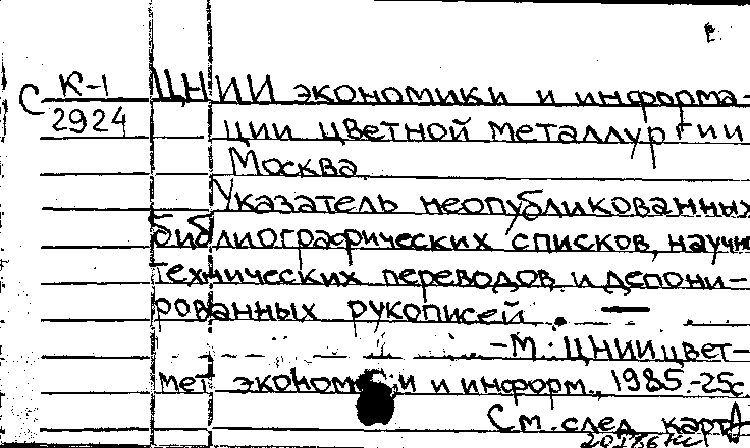 С К-1 ЦНИИ экономики и информа-
2924 ции цветной металлургии
Москва.
Указатель неопубликованных
библиографических списков, научно
технических переводов и депони-
рованных рукописей. —
-М.: ЦНИИцвет-
мет экономики и информ., 1985.-25с
См. след. карт